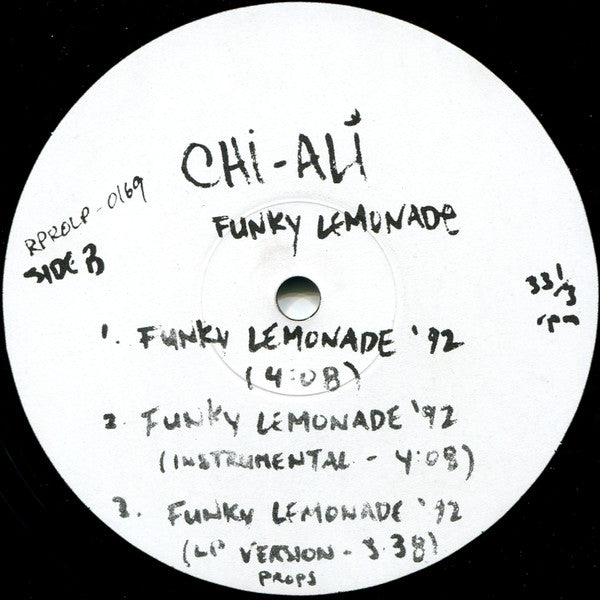 CHI-ALI
FUNKY LEMONADE
RPROLP-0169
SIDE B
33 1/3
rpm
1. FUNKY LEMONADE '92
(4:08)
2. FUNKY LEMONADE '92
(INSTRUMENTAL - 4:08)
3. FUNKY LEMONADE '92
(LP VERSION - 3:38)
PROPS